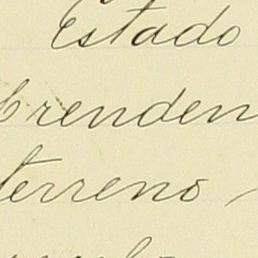 Estado
brenden
terreno